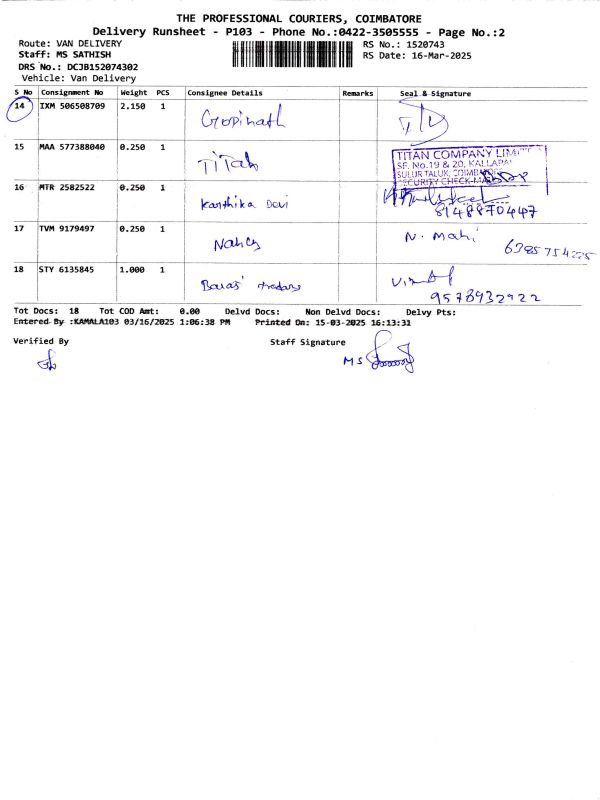 THE PROFESSIONAL COURIERS, COIMBATORE
Delivery Runsheet - P103 - Phone No.:0422-3505555 - Page No.:2
Route: VAN DELIVERY
RS No.: 1520743
Staff: MS SATHISH
RS Date: 16-Mar-2025
DRS No.: DCJB152074302
Vehicle: Van Delivery
S No Consignment No Weight PCS Consignee Details Remarks Seal & Signature
14 IXM 506508709 2.150 1 Gopinath
15 MAA 577388040 0.250 1 TiTan
TITAN COMPANY LIMIT
SF. No.19 & 20, KALLAPA
SULUR TALUK, COIMB
SECURITY CHECK-
16 MTR 2582522 0.250 1 Karthika Devi
8148870447
17 TVM 9179497 0.250 1 Nancy N. Mahi
6385754225
18 STY 6135845 1.000 1 Balaji traders
9578932922
Tot Docs: 18 Tot COD Amt: 0.00 Delvd Docs: Non Delvd Docs: Delvy Pts:
Entered By :KAMALA103 03/16/2025 1:06:38 PM Printed On: 15-03-2025 16:13:31
Verified By Staff Signature
MS